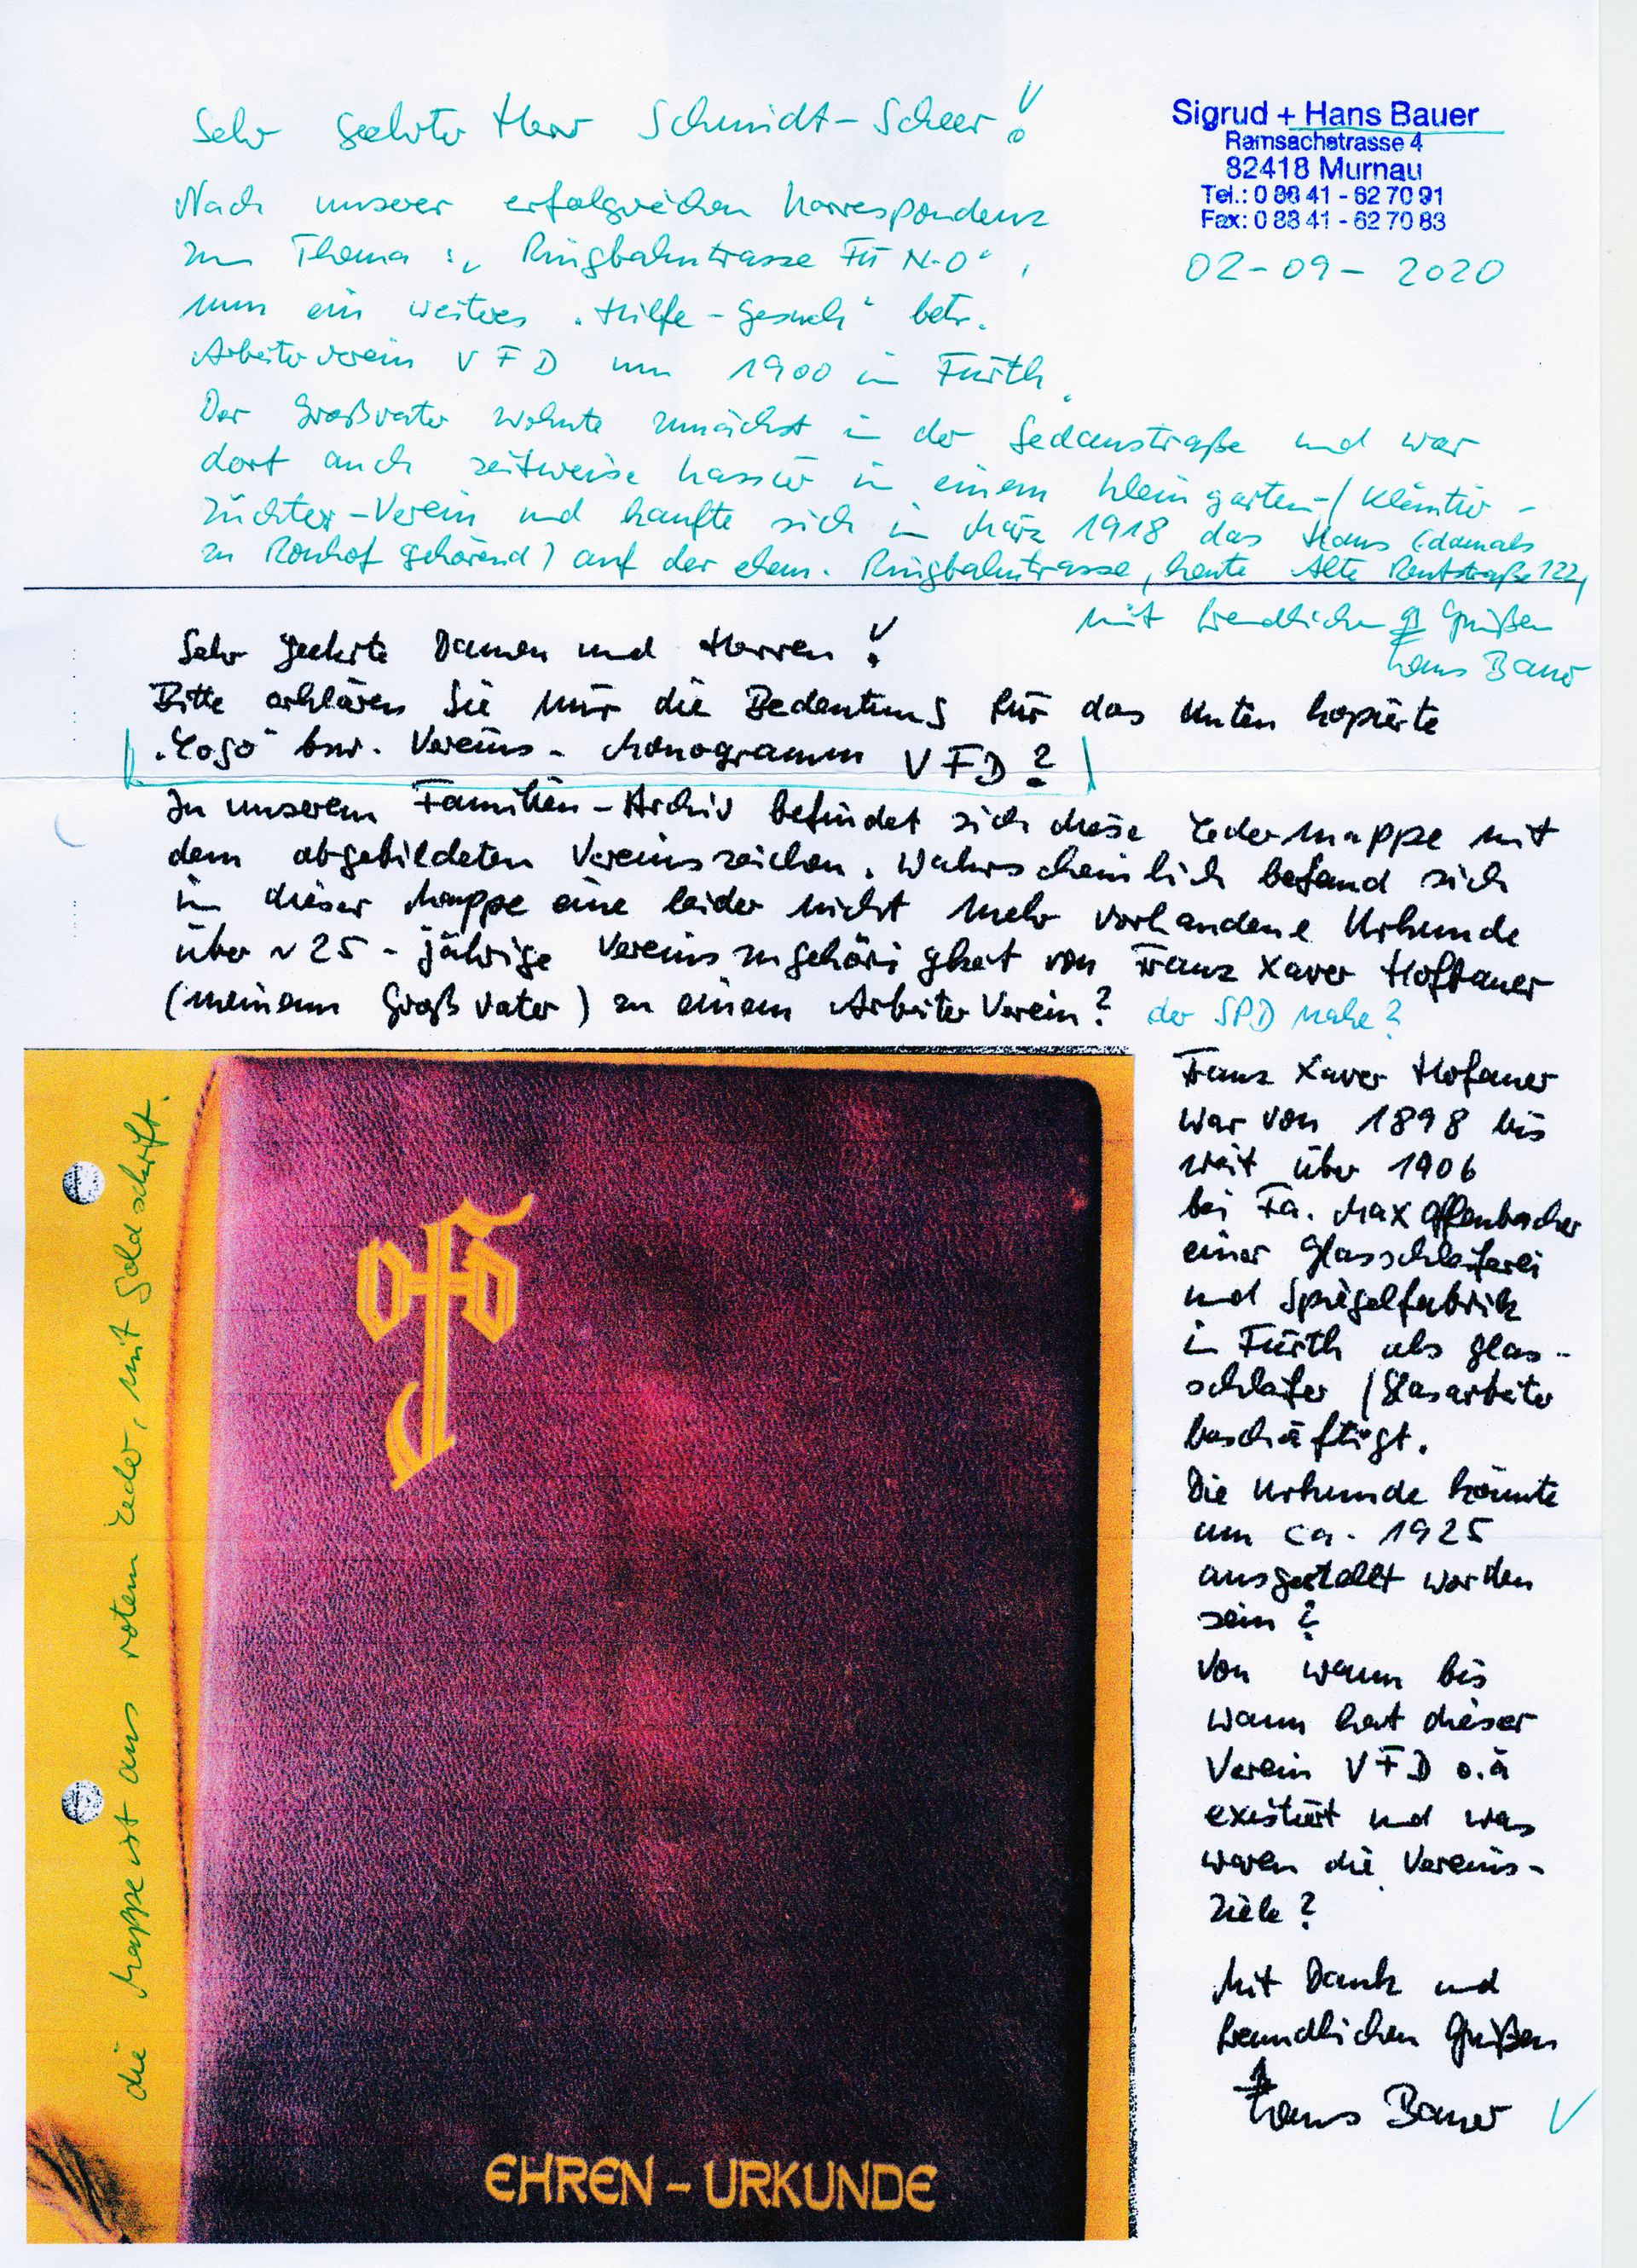 Sehr geehrter Herr Schmidt-Scheer!
Sigrud + Hans Bauer
Ramsachstrasse 4
82418 Murnau
Tel.: 0 88 41 - 62 70 91
Fax: 0 88 41 - 62 70 83
02-09-2020
Nach unserer erfolgreichen Korrespondenz
zum Thema: „Ringbahntrasse FÜ N-O“,
nun ein weiteres „Hilfe-Gesuch“ betr.
Arbeiterverein VFD um 1900 in Fürth.
Der Großvater wohnte zunächst in der Sedanstraße und war
dort auch zeitweise Kassier in einem Kleingarten-/Kleintier-
züchter-Verein und kaufte sich im März 1918 das Haus (damals
zu Ronhof gehörend) auf der ehem. Ringbahntrasse, heute Alte Reutstraße 122,
mit freundlichen Grüßen
Hans Bauer
Sehr geehrte Damen und Herren!
Bitte erklären Sie mir die Bedeutung für das unten kopierte
„Logo“ bzw. Vereins-Monogramm VFD?
In unserem Familien-Archiv befindet sich diese Ledermappe mit
dem abgebildeten Vereinszeichen. Wahrscheinlich befand sich
in dieser Mappe eine leider nicht mehr vorhandene Urkunde
über ~25-jährige Vereinszugehörigkeit von Franz Xaver Hofbauer
(meinem Großvater) zu einem Arbeiter Verein? der SPD nahe?
die Mappe ist aus rotem Leder, mit Goldschrift.
EHREN-URKUNDE
Franz Xaver
war von 1898 bis
weit über 1906
bei Fa. Max Offenbacher
einer Glasschleiferei
und Spiegelfabrik
in Fürth als Glas-
schleifer / Glasarbeiter
beschäftigt.
Die Urkunde könnte
um ca. 1925
ausgestellt worden
sein?
Von wann bis
wann hat dieser
Verein VFD o.ä
existiert und was
waren die Vereins-
ziele?
Mit Dank und
freundlichen Grüßen
Hans Bauer